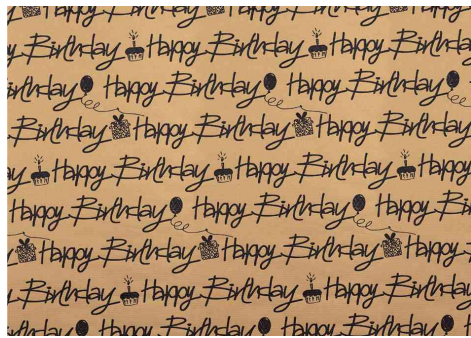 Happy Birthday Happy Birthday
Birthday Happy Birthday Happy Birthday
Happy Birthday Happy Birthday
Happy Birthday Happy Birthday Happy
Happy Birthday Happy Birthday Happy
Happy Birthday Happy Birthday Happy
Happy Birthday Happy Birthday
Birthday Happy Birthday Happy Birthday
Birthday Happy Birthday Happy